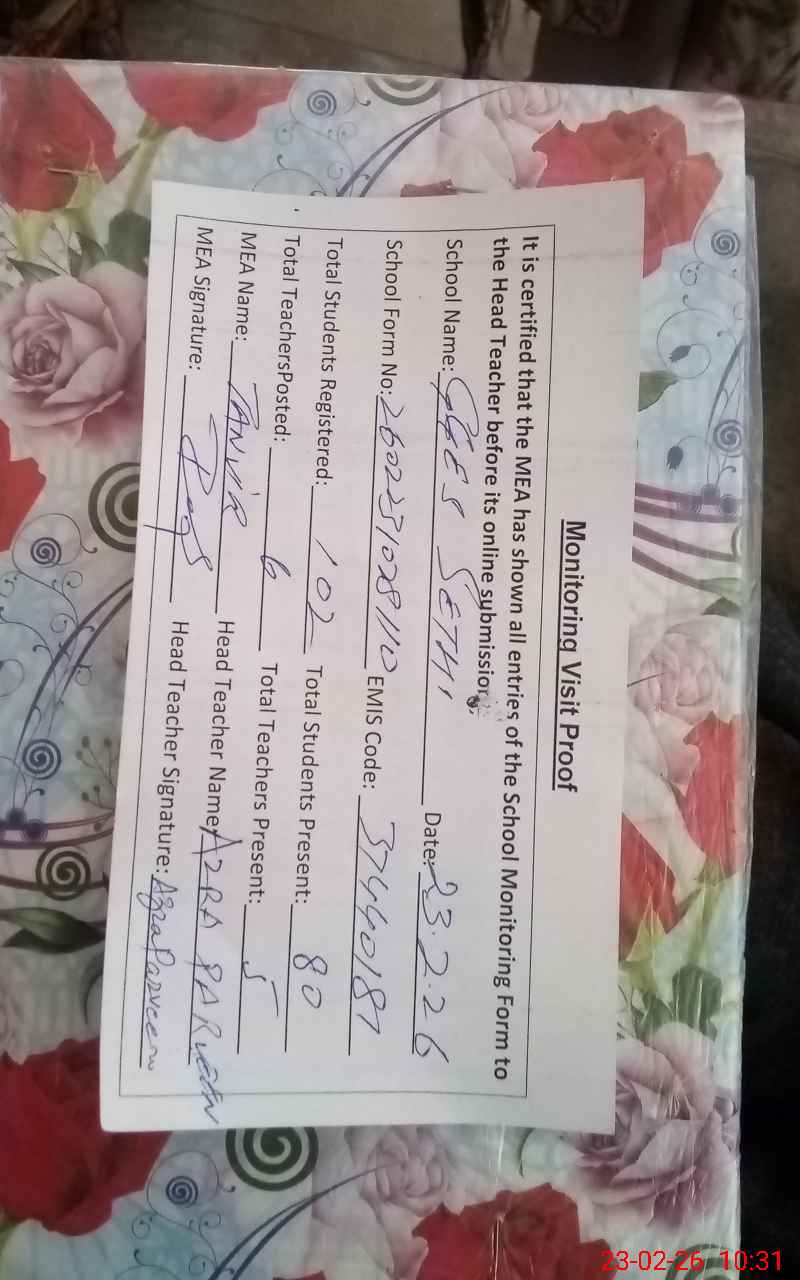 Monitoring Visit Proof
It is certified that the MEA has shown all entries of the School Monitoring Form to
the Head Teacher before its online submission.
School Name: GGES SETHI Date: 23.2.26
School Form No: EMIS Code: 37440187
Total Students Registered: 102 Total Students Present: 80
Total TeachersPosted: 6 Total Teachers Present: 5
MEA Name: TANVIR Head Teacher Name: AZRA PARVEEN
MEA Signature: Head Teacher Signature: Azra Parveen
23-02-26 10:31